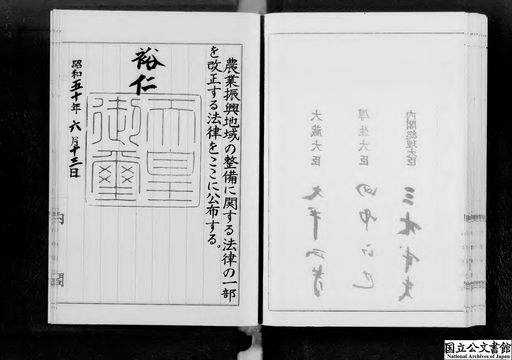 農業振興地域の整備に関する法律の一部
を改正する法律をここに公布する。
裕仁
天皇
御璽
昭和五十年六月十三日
内閣
内閣総理大臣 三木武夫
厚生大臣 田中正巳
大蔵大臣 大平正芳
国立公文書館
National Archives of Japan